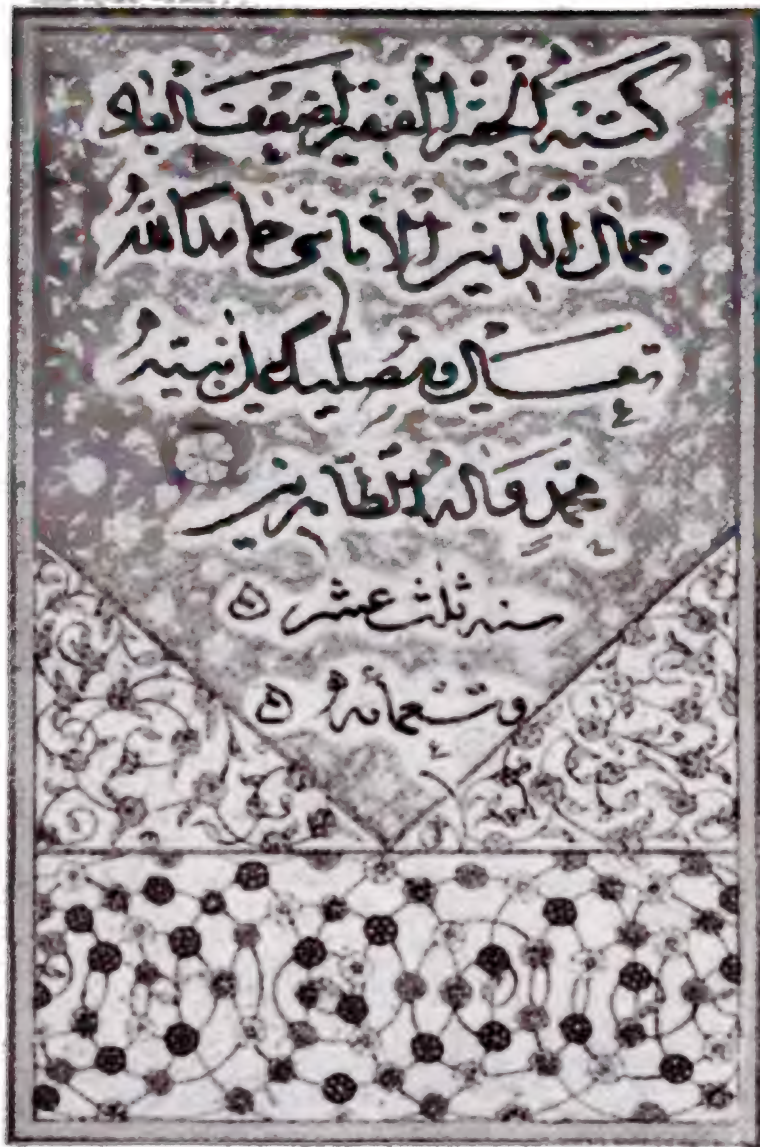 كتبه الحقير الفقير اضعف العباد
جمال الدين الأماسى حامدا لله
تعالى ومصليا على نبيه
محمد وآله الطاهرين
سنه ثلث عشر
وتسعمائه